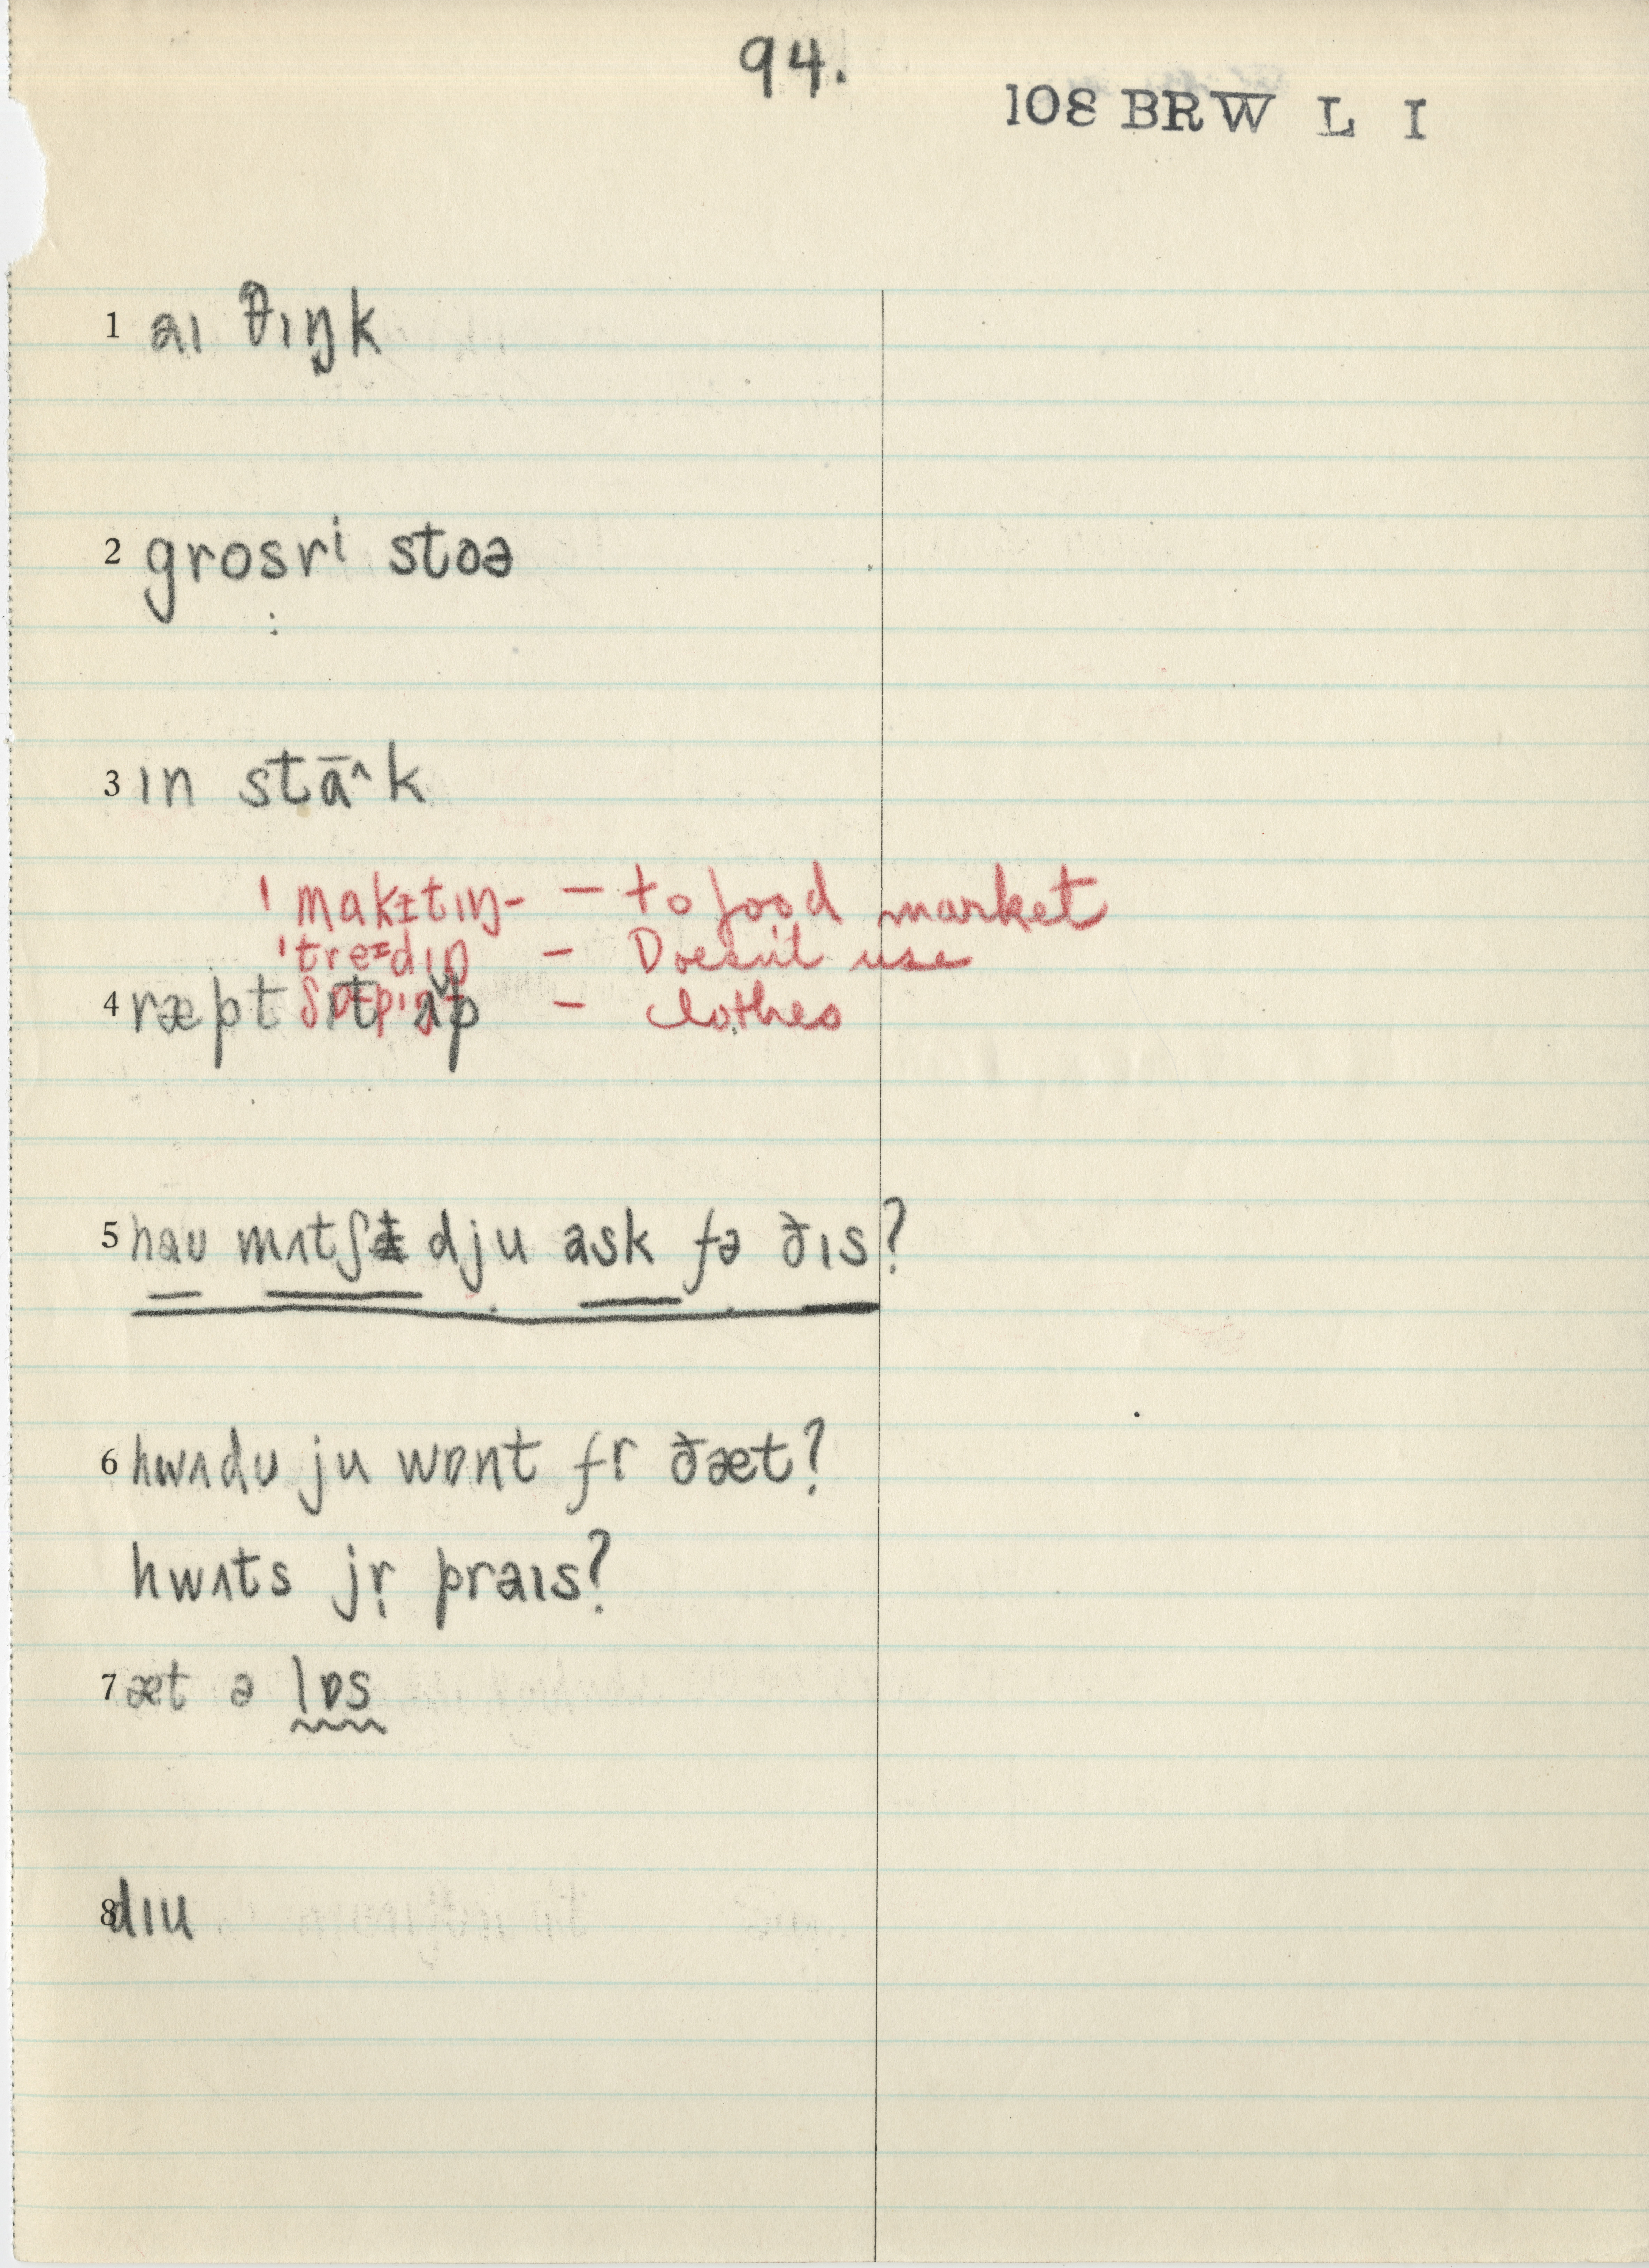 94.
108 BRW L I
1 aɪ θɪŋk
2 grosrⁱ stoə
3 ɪn stā^k
ˈmakɨtɪŋ- – to food market
ˈtreɪdɪŋ – Doesn't use
ʃɒpɪŋ – clothes
4 ræpt ɪt ʌp
5 haʊ mʌtʃ dju ask fə ðɪs?
6 hwʌdʊ ju wɒnt fr ðæt?
hwʌts jr̩ praɪs?
7 æt ə lɒs
8 dɪu